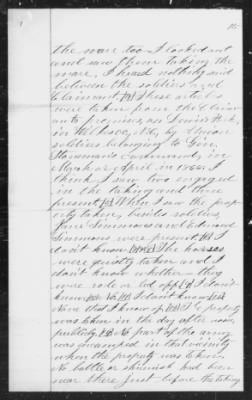 the mare too I looked out
and saw them taking the
mare, I heard nothing said
between the soldiers and
claimant These articles
were taken from the claim
ants premises on
in by Union
soldiers belonging to Gen.
Stoneman's command, in
March or April in 1865. I
think I saw two engaged
in the taking and three
present When I saw the prop
erty taken, besides soldiers,
Jane Simmons and Edward
Simmons were present I
don't know The horses
were quietly taken and I
don't know whether they
were rode or led off I don't
know No I don't know
None that I know of The property
was taken in the day after noon,
publicly No part of the army
was encamped in that vicinity
when the property was taken.
No battle or skirmish had been
near there just before the taking